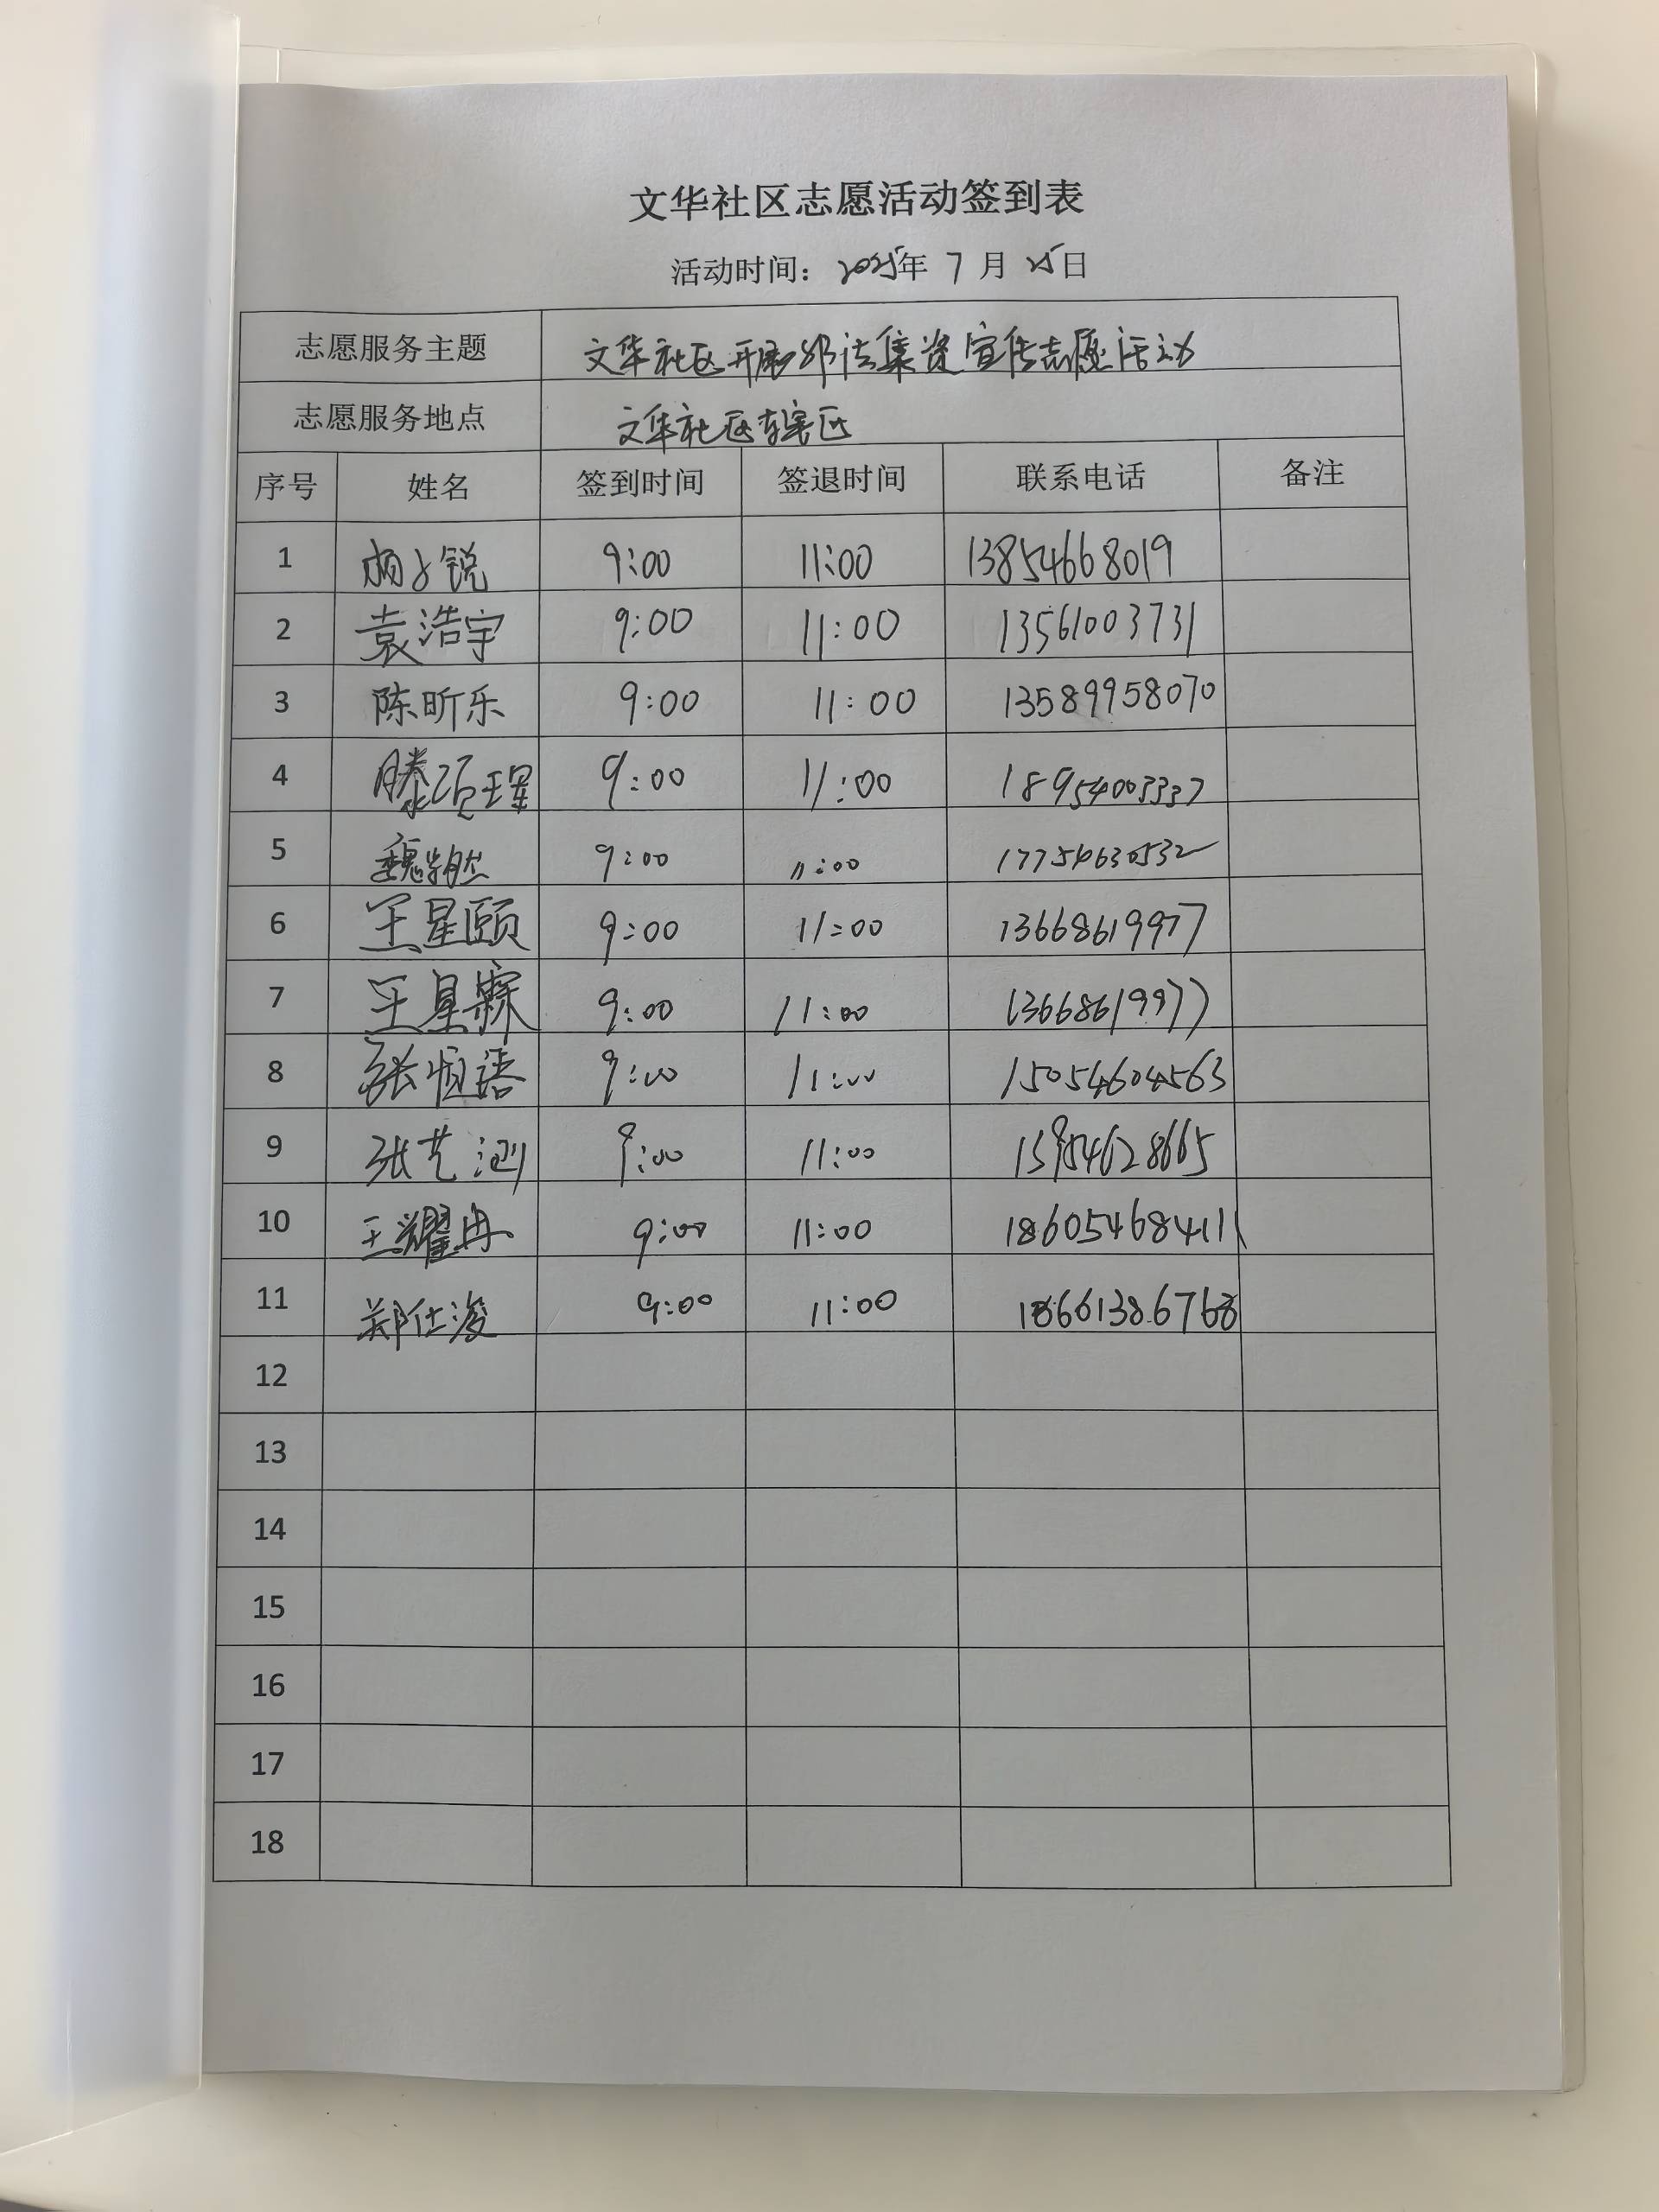 文华社区志愿活动签到表
活动时间：2025年 7 月 25日
志愿服务主题 文华社区开展非法集资宣传志愿活动
志愿服务地点 文华社区辖区
序号 姓名 签到时间 签退时间 联系电话 备注
1 锐 9:00 11:00 13854668019
2 袁浩宇 9:00 11:00 13561003731
3 陈昕乐 9:00 11:00 13589958070
4 滕 9:00 11:00 18954003337
5 魏 9:00 11:00 17754630532
6 王星颐 9:00 11:00 13668619977
7 王星霖 9:00 11:00 13668619977
8 张恒语 9:00 11:00 15054604563
9 张艺 9:00 11:00 15954628665
10 王耀冉 9:00 11:00 18605468411
11 郑仕浚 9:00 11:00 18661386768
12
13
14
15
16
17
18